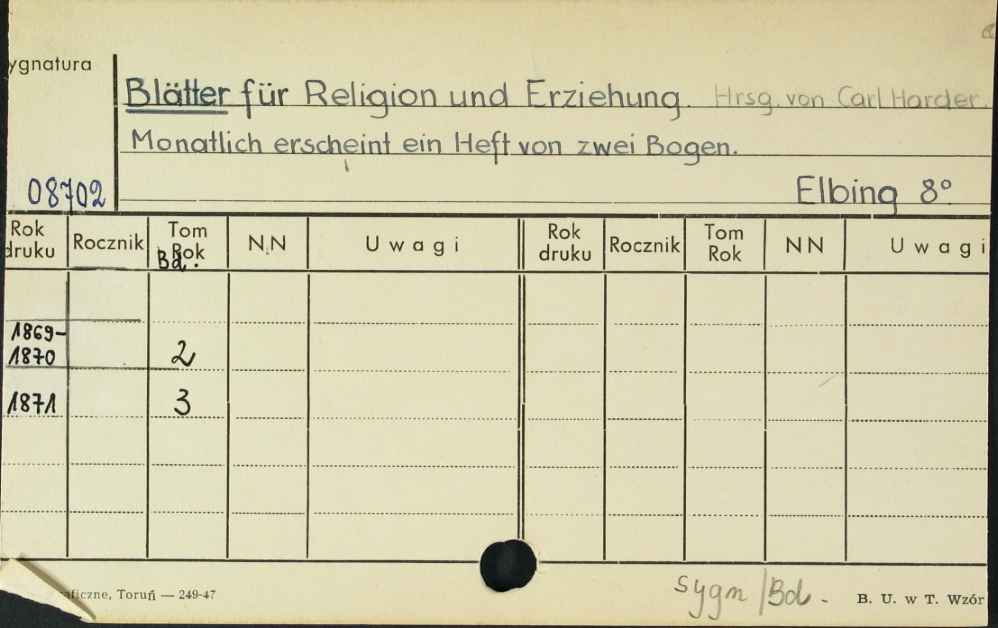 ygnatura
Blätter für Religion und Erziehung. Hrsg. von Carl Harder.
Monatlich erscheint ein Heft von zwei Bogen.
08702
Elbing 8°
Rok druku Rocznik Tom Rok Bd. NN Uwagi Rok druku Rocznik Tom Rok NN Uwagi
1869-
1870 2
1871 3
ficzne, Toruń — 249-47
sygn/Bd.
B. U. w T. Wzór